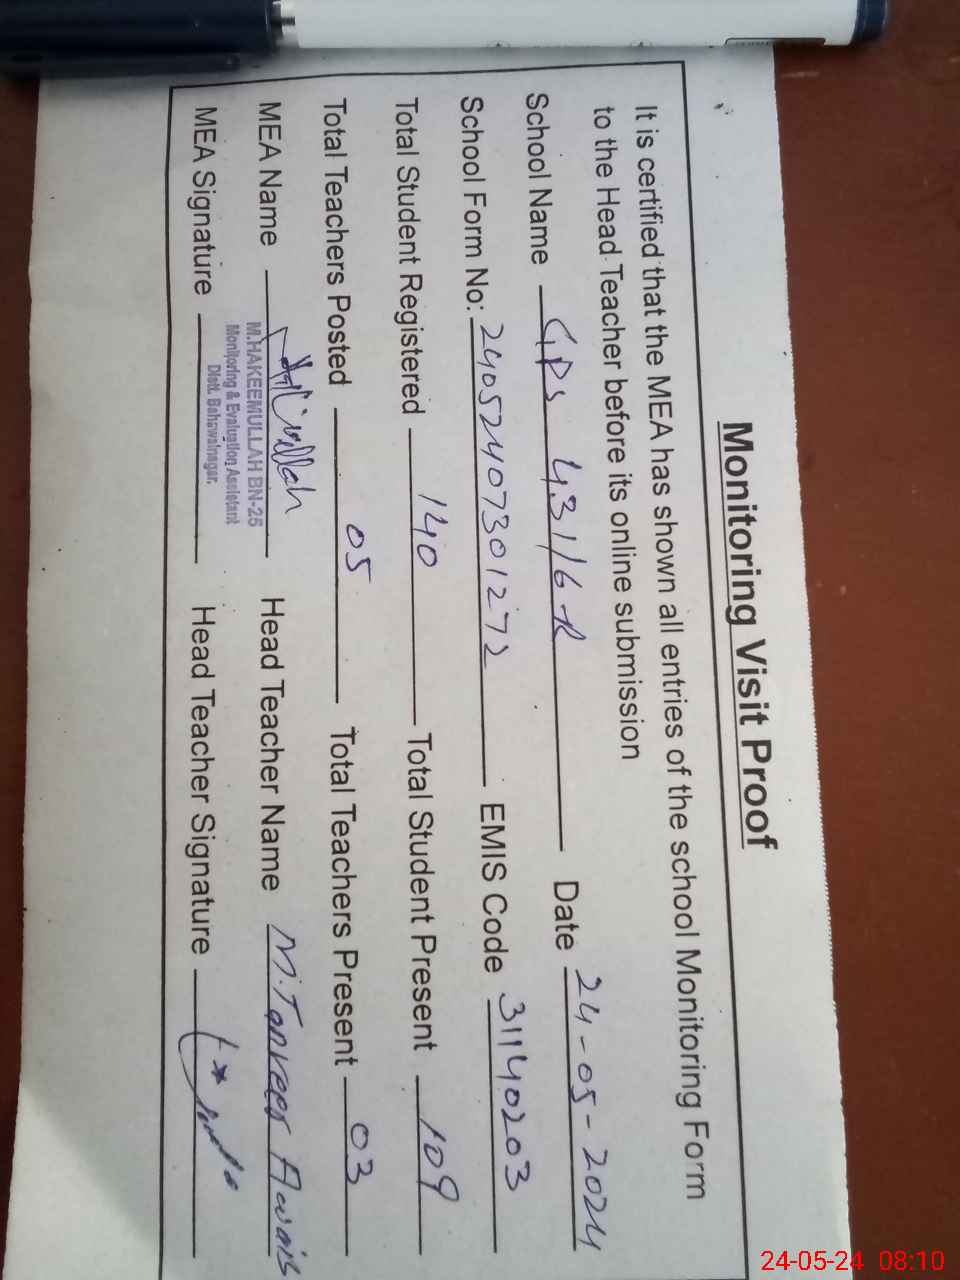 Monitoring Visit Proof
It is certified that the MEA has shown all entries of the school Monitoring Form
to the Head Teacher before its online submission
School Name GPS 431/6-R Date 24-05-2024
School Form No: 24052407301272 EMIS Code 31140203
Total Student Registered 140 Total Student Present 109
Total Teachers Posted 05 Total Teachers Present 03
MEA Name Head Teacher Name M. Tanveer Awais
M.HAKEEMULLAH BN-25
Monitoring & Evaluation Assistant
Distt. Bahawalnagar.
MEA Signature Head Teacher Signature
24-05-24 08:10